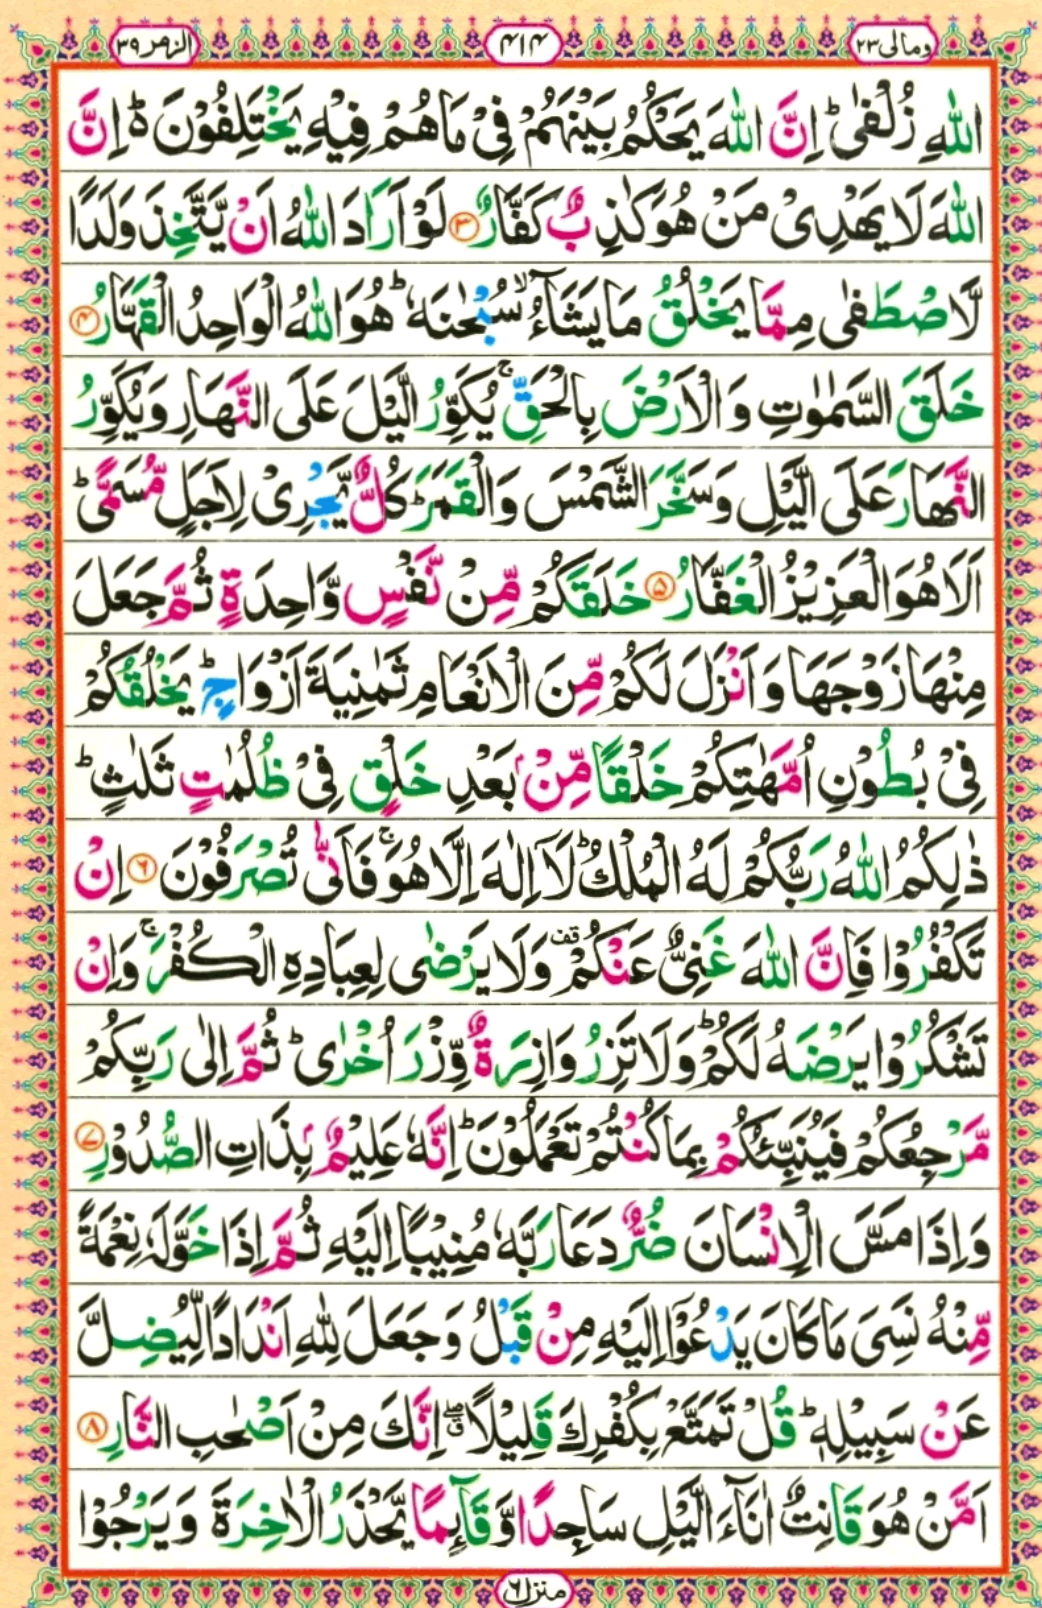 ومالی ۲۳
۴۱۴
الزمر ۳۹
اللّٰهِ زُلْفٰی ؕ اِنَّ اللّٰهَ یَحْکُمُ بَیْنَهُمْ فِیْ مَا هُمْ فِیْهِ یَخْتَلِفُوْنَ ؕ۬ اِنَّ
اللّٰهَ لَا یَهْدِیْ مَنْ هُوَ کٰذِبٌ کَفَّارٌ ۝۳ لَوْ اَرَادَ اللّٰهُ اَنْ یَّتَّخِذَ وَلَدًا
لَّاصْطَفٰی مِمَّا یَخْلُقُ مَا یَشَآءُ ۙ سُبْحٰنَهٗ ؕ هُوَ اللّٰهُ الْوَاحِدُ الْقَهَّارُ ۝۴
خَلَقَ السَّمٰوٰتِ وَ الْاَرْضَ بِالْحَقِّ ۚ یُکَوِّرُ الَّیْلَ عَلَی النَّهَارِ وَ یُکَوِّرُ
النَّهَارَ عَلَی الَّیْلِ وَ سَخَّرَ الشَّمْسَ وَ الْقَمَرَ ؕ کُلٌّ یَّجْرِیْ لِاَجَلٍ مُّسَمًّی ؕ
اَلَا هُوَ الْعَزِیْزُ الْغَفَّارُ ۝۵ خَلَقَکُمْ مِّنْ نَّفْسٍ وَّاحِدَةٍ ثُمَّ جَعَلَ
مِنْهَا زَوْجَهَا وَ اَنْزَلَ لَکُمْ مِّنَ الْاَنْعَامِ ثَمٰنِیَةَ اَزْوَاجٍ ؕ یَخْلُقُکُمْ
فِیْ بُطُوْنِ اُمَّهٰتِکُمْ خَلْقًا مِّنْۢ بَعْدِ خَلْقٍ فِیْ ظُلُمٰتٍ ثَلٰثٍ ؕ
ذٰلِکُمُ اللّٰهُ رَبُّکُمْ لَهُ الْمُلْکُ ؕ لَاۤ اِلٰهَ اِلَّا هُوَ ۚ فَاَنّٰی تُصْرَفُوْنَ ۝۶ اِنْ
تَکْفُرُوْا فَاِنَّ اللّٰهَ غَنِیٌّ عَنْکُمْ ۫ وَ لَا یَرْضٰی لِعِبَادِهِ الْکُفْرَ ۚ وَ اِنْ
تَشْکُرُوْا یَرْضَهُ لَکُمْ ؕ وَ لَا تَزِرُ وَازِرَةٌ وِّزْرَ اُخْرٰی ؕ ثُمَّ اِلٰی رَبِّکُمْ
مَّرْجِعُکُمْ فَیُنَبِّئُکُمْ بِمَا کُنْتُمْ تَعْمَلُوْنَ ؕ اِنَّهٗ عَلِیْمٌۢ بِذَاتِ الصُّدُوْرِ ۝۷
وَ اِذَا مَسَّ الْاِنْسَانَ ضُرٌّ دَعَا رَبَّهٗ مُنِیْبًا اِلَیْهِ ثُمَّ اِذَا خَوَّلَهٗ نِعْمَةً
مِّنْهُ نَسِیَ مَا کَانَ یَدْعُوْۤا اِلَیْهِ مِنْ قَبْلُ وَ جَعَلَ لِلّٰهِ اَنْدَادًا لِّیُضِلَّ
عَنْ سَبِیْلِهٖ ؕ قُلْ تَمَتَّعْ بِکُفْرِکَ قَلِیْلًا ۖۗ اِنَّکَ مِنْ اَصْحٰبِ النَّارِ ۝۸
اَمَّنْ هُوَ قَانِتٌ اٰنَآءَ الَّیْلِ سَاجِدًا وَّ قَآئِمًا یَّحْذَرُ الْاٰخِرَةَ وَ یَرْجُوْا
منزل ۶